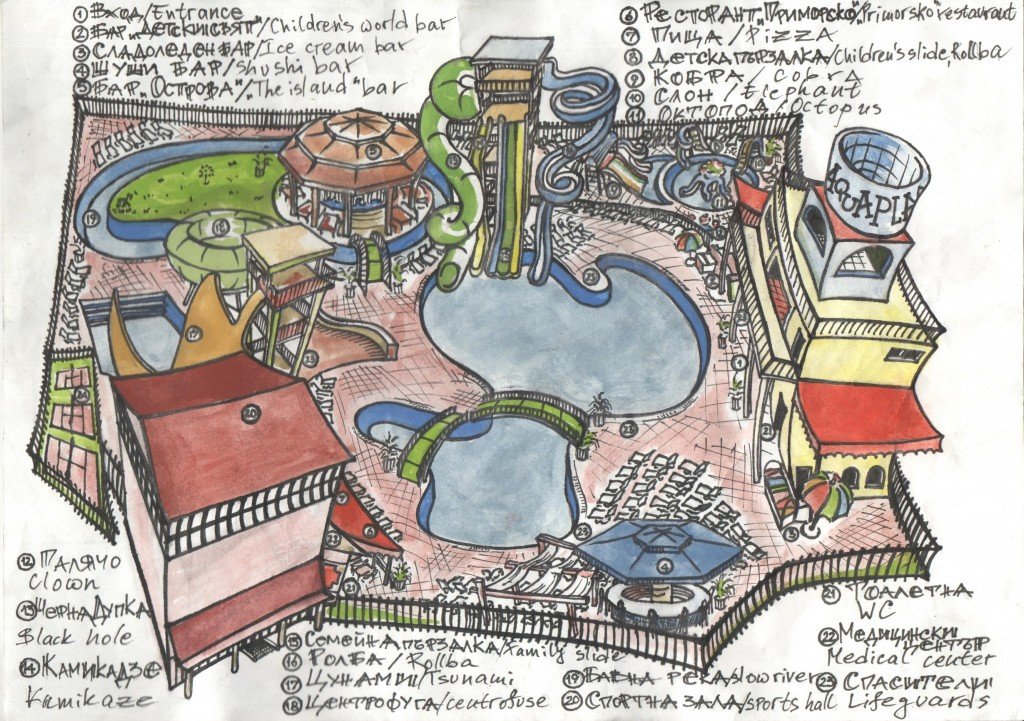 ① Вход/Entrance
② Бар „Детски свят"/Children's world bar
③ Сладоледен бар/Ice cream bar
④ Шуши бар/shushi bar
⑤ Бар „Острова"/„The island" bar
⑥ Ресторант „Приморско"/„Primorsko" restaurant
⑦ Пица/Pizza
⑧ Детска пързалка/Children's slide, Rollba
⑨ Кобра/Cobra
⑩ Слон/Elephant
⑪ Октопод/Octopus
AQUAPLA
⑫ Палячо
Clown
⑬ Черна дупка
Black hole
⑭ Камикадзе
Kamikaze
⑮ Семейна пързалка/Family slide
⑯ Ролба/Rollba
⑰ Цунами/Tsunami
⑱ Центрофуга/centrofuse
⑲ Бавна река/slow river
⑳ Спортна зала/sports hall
㉑ Тоалетна
WC
㉒ Медицински
център
Medical center
㉓ Спасители
Lifeguards